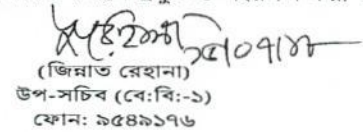 (জিন্নাত রেহানা)
উপ-সচিব (বে:বি:-১)
ফোন: ৯৫৪৯১৭৬